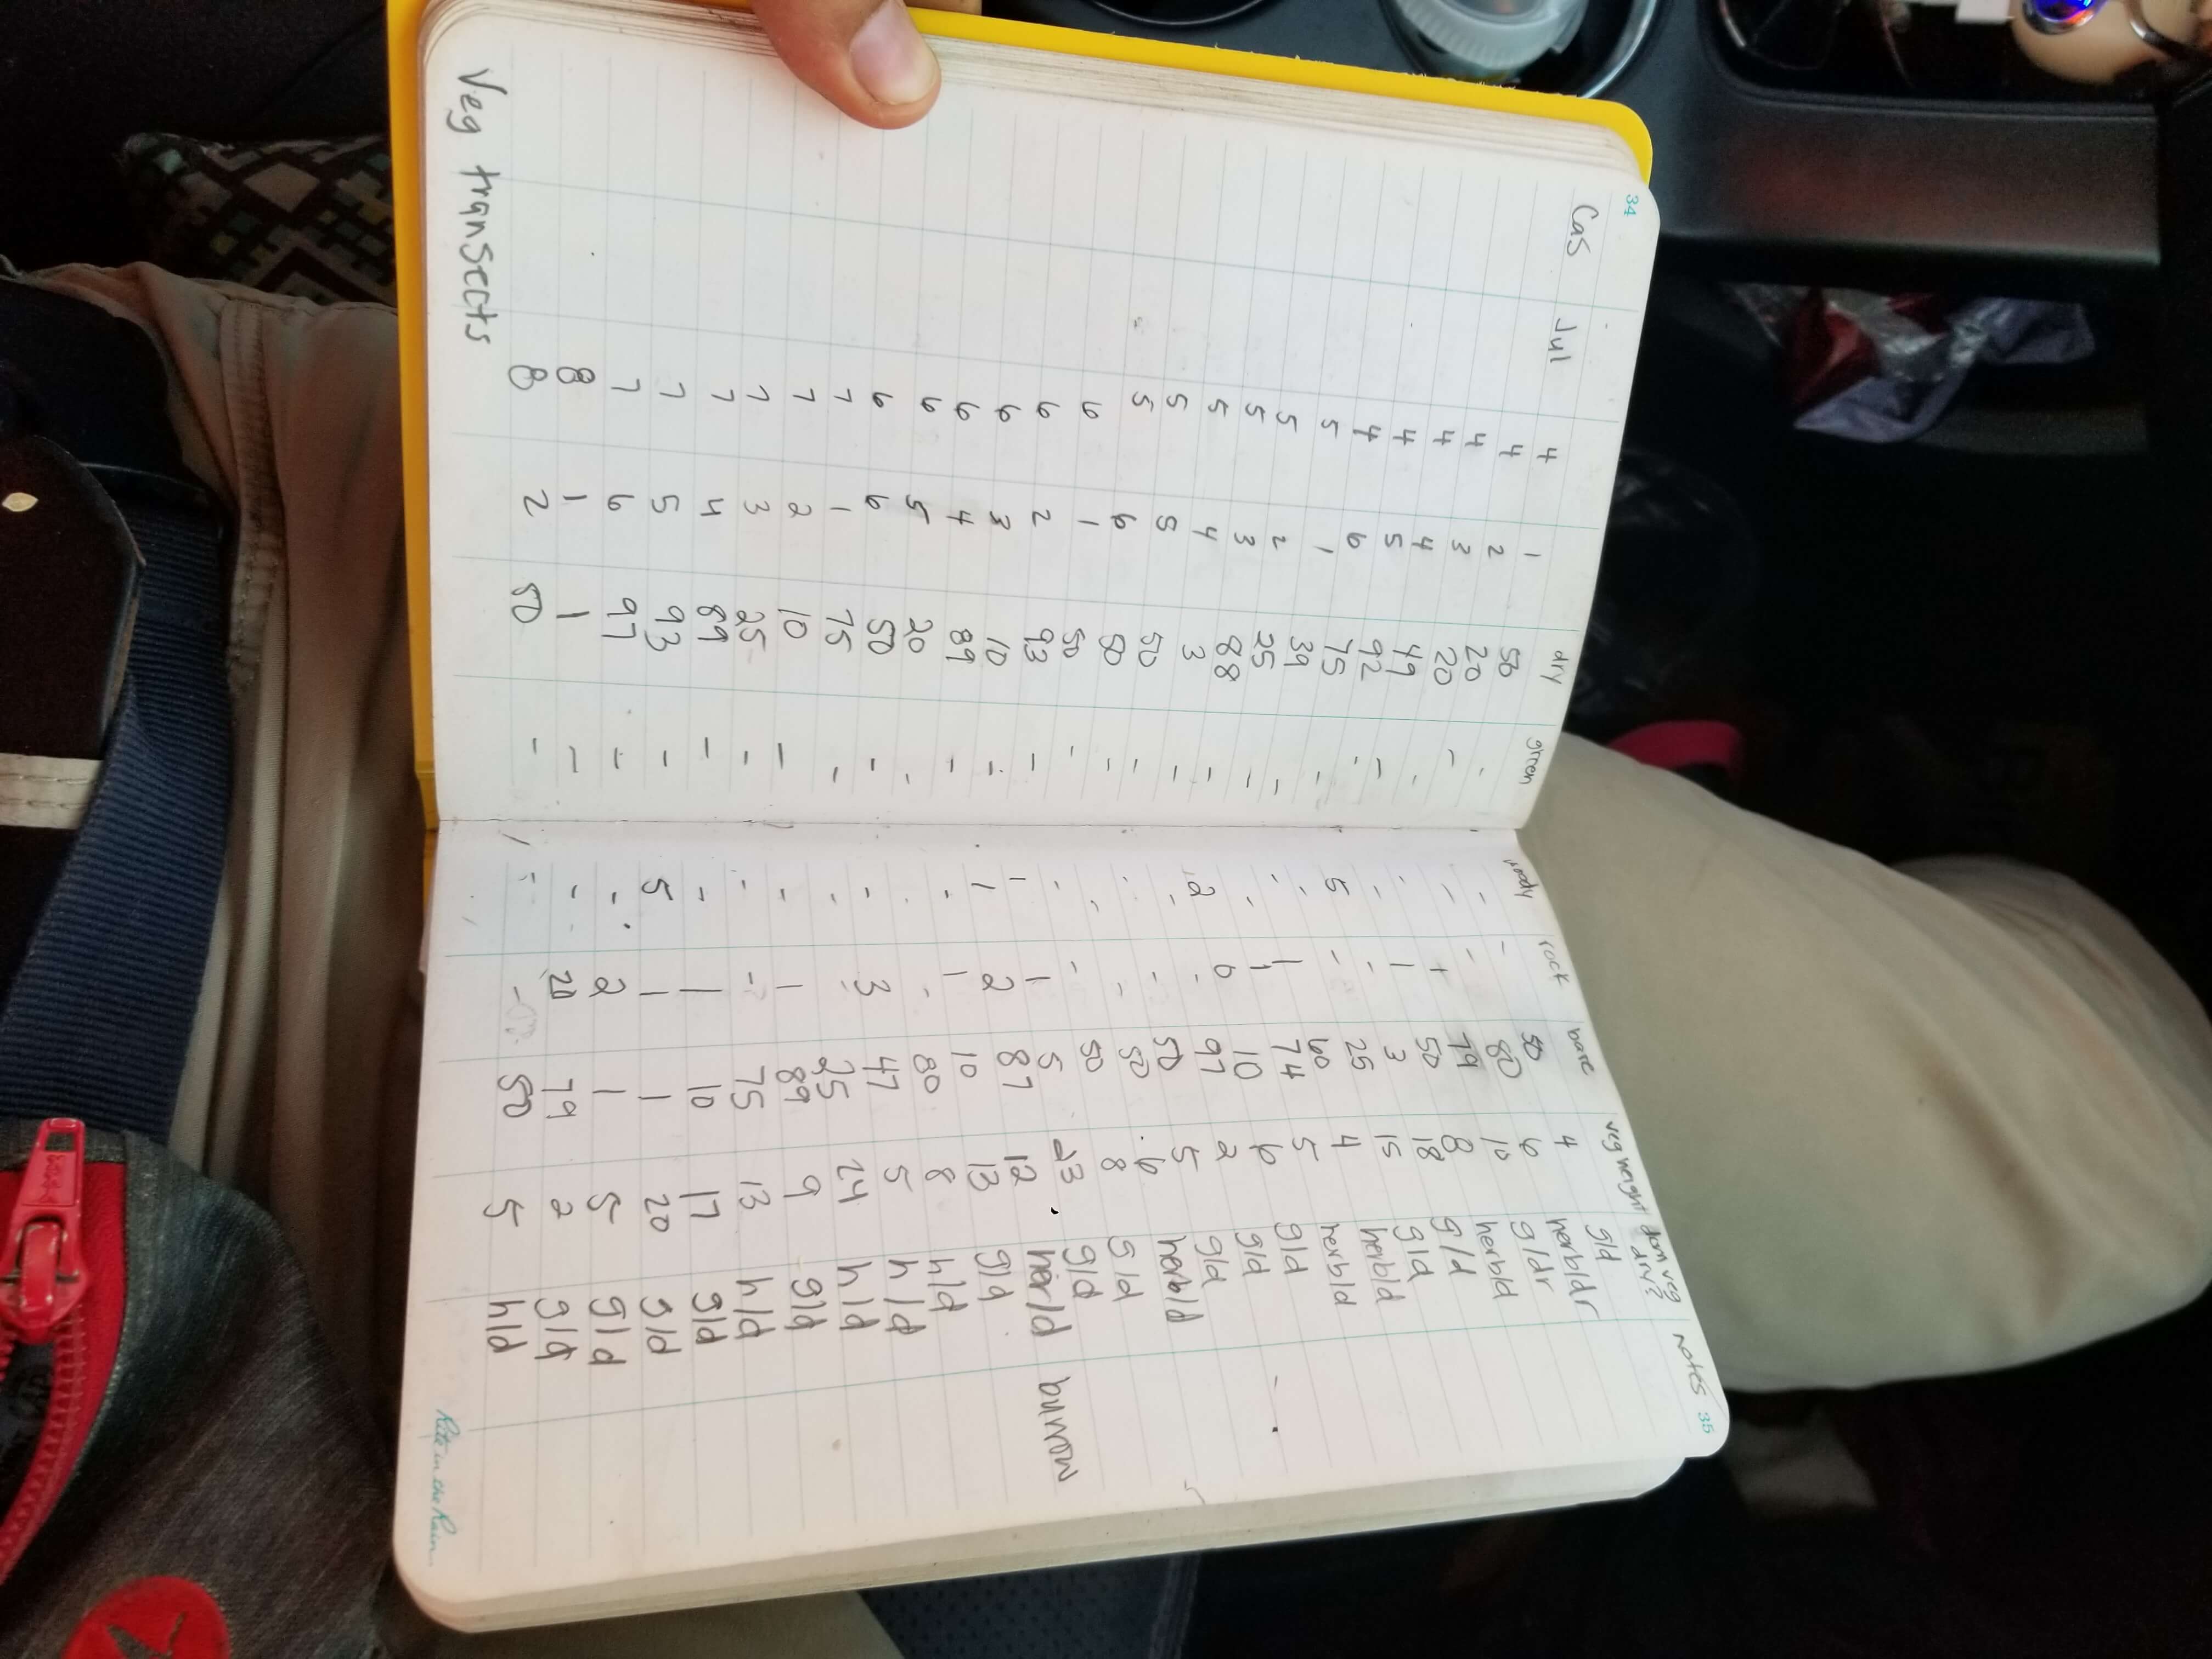 34 35
Cas Jul dry green woody rock bare veg height dom veg dry? Notes
4 1 50 - - - 50 4 g/d
4 2 20 - - - 80 6 herb/dr
4 3 20 - - 1 79 10 g/dr
4 4 49 - - 1 50 8 herb/d
4 5 92 - 5 - 3 18 g/d
4 6 75 - - - 25 15 g/d
5 1 39 - - 1 60 4 herb/d
5 2 25 - - 1 74 5 herb/d
5 3 88 - 2 - 10 6 g/d
5 4 3 - - - 97 2 g/d
5 5 50 - - - 50 5 g/d
5 6 50 - - - 50 6 herb/d
6 1 50 - - - 50 8 g/d
6 2 93 - 1 1 5 23 g/d
6 3 10 - 1 2 87 12 her/d burrow
6 4 89 - - 1 10 13 g/d
6 5 20 - - - 80 8 h/d
6 6 50 - - 3 47 5 h/d
7 1 75 - - - 25 24 h/d
7 2 10 - - 1 89 9 g/d
7 3 25 - - - 75 13 h/d
7 4 89 - - 1 10 17 g/d
7 5 93 - 5 1 1 20 g/d
7 6 97 - - 2 1 5 g/d
8 1 1 - - 20 79 2 g/d
8 2 50 - - - 50 5 h/d
Veg transects
Rite in the Rain